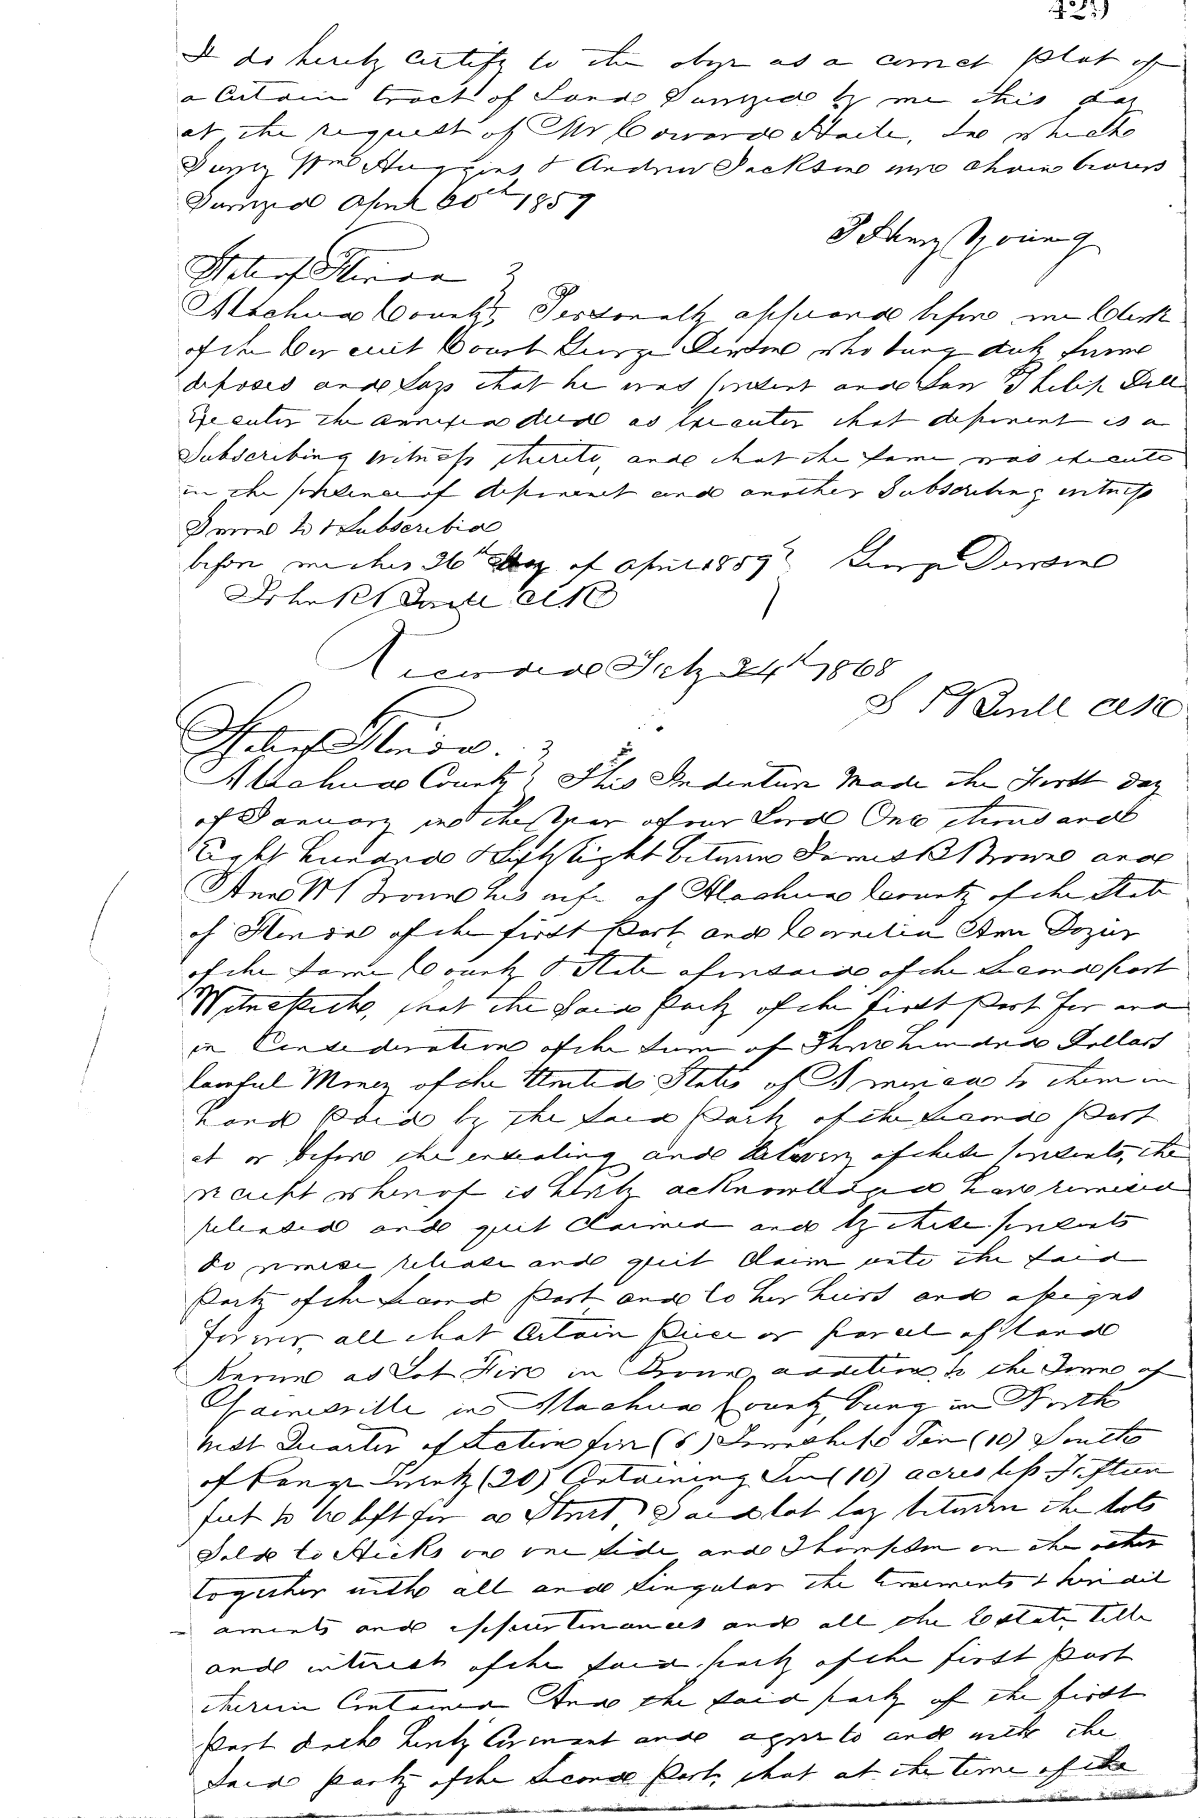 I do hereby Certify to the above as a correct Plat of
a Certain tract of Land Surveyed by me this day
at the request of Mr Edward Haile, In which
Survey Wm Huggins & Andrew Jackson were Chain bearers
Surveyed April 20th 1859
Young
State of Florida }
Alachua County } Personally appeared before me Clerk
of the Circuit Court George Dewson who being duly sworn
deposes and Says that he was present and Saw Philip Dell
Executor the annexed deed as Executor that deponent is a
Subscribing witness thereto, and that the Same was execute
in the presence of deponent and another Subscribing witness
Sworn to & Subscribed
before me this 26th day of April 1859 } George Dewson
John Clk
Recorded July 24th 1868
Clk
State of Florida }
Alachua County } This Indenture Made the First day
of January in the Year of our Lord One thousand
Eight hundred & Fifty Eight between James B Brown and
Ann M Brown his wife of Alachua County of the State
of Florida of the first Part and Cornelia Ann Dozier
of the Same County & State aforesaid of the Second part
Witnesseth, that the Said Party of the first Part for and
in Consideration of the Sum of Three hundred Dollars
lawful Money of the United States of America to them in
hand Paid by the Said Party of the Second Part
at or before the ensealing and delivery of these presents, the
receipt whereof is hereby acknowledged have remised
released and quit Claimed and by these presents
do remise release and quit Claim unto the Said
Party of the Second Part and to her heirs and assigns
forever, all that Certain Piece or parcel of land
Known as Lot Five in Browns addition to the Town of
Gainesville in Alachua County, being in North
West Quarter of Section five (5) Township Ten (10) South
of Range Twenty (20) Containing Ten (10) acres less Fifteen
feet to be left for a Street, Said lot lay between the lots
Sold to Hicks on one Side and Thompson on the other
together with all and Singular the tenements & heridit
- aments and appurtenances and all the Estate, title
and interest of the Said party of the first Part
therein Contained And the Said party of the first
Part doth hereby Covenant and agree to and with the
Said party of the Second Part, that at the time of the